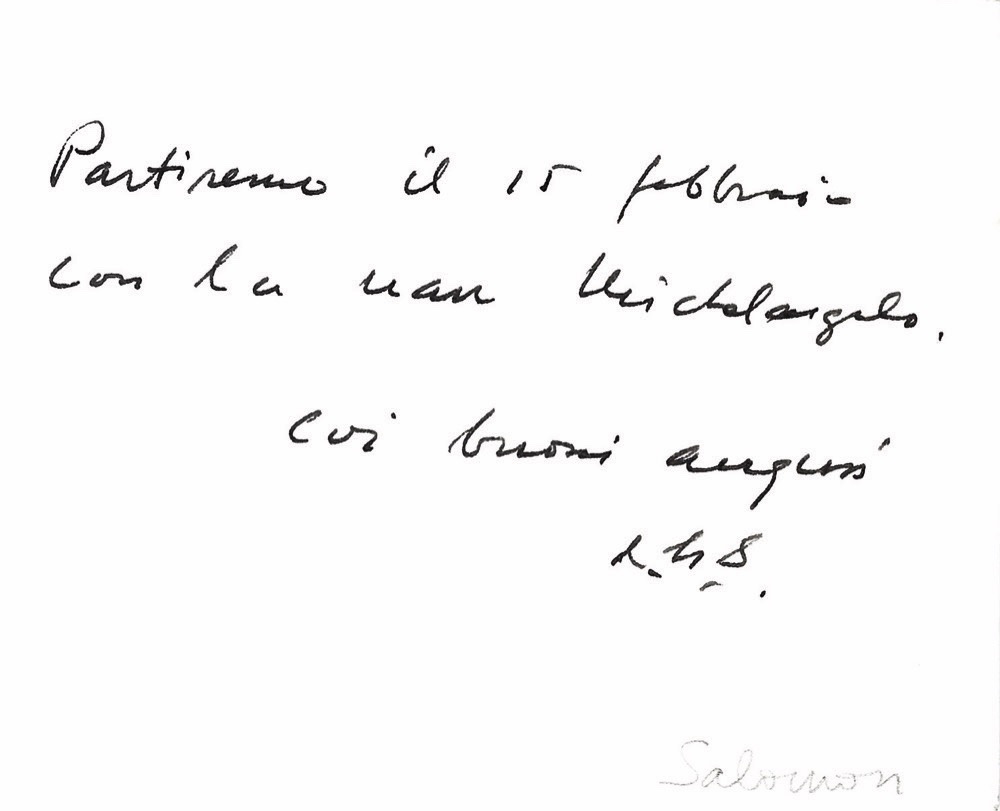 Partiremo il 15 febbraio
con la nave Michelangelo.
Coi buoni auguri
Salomon